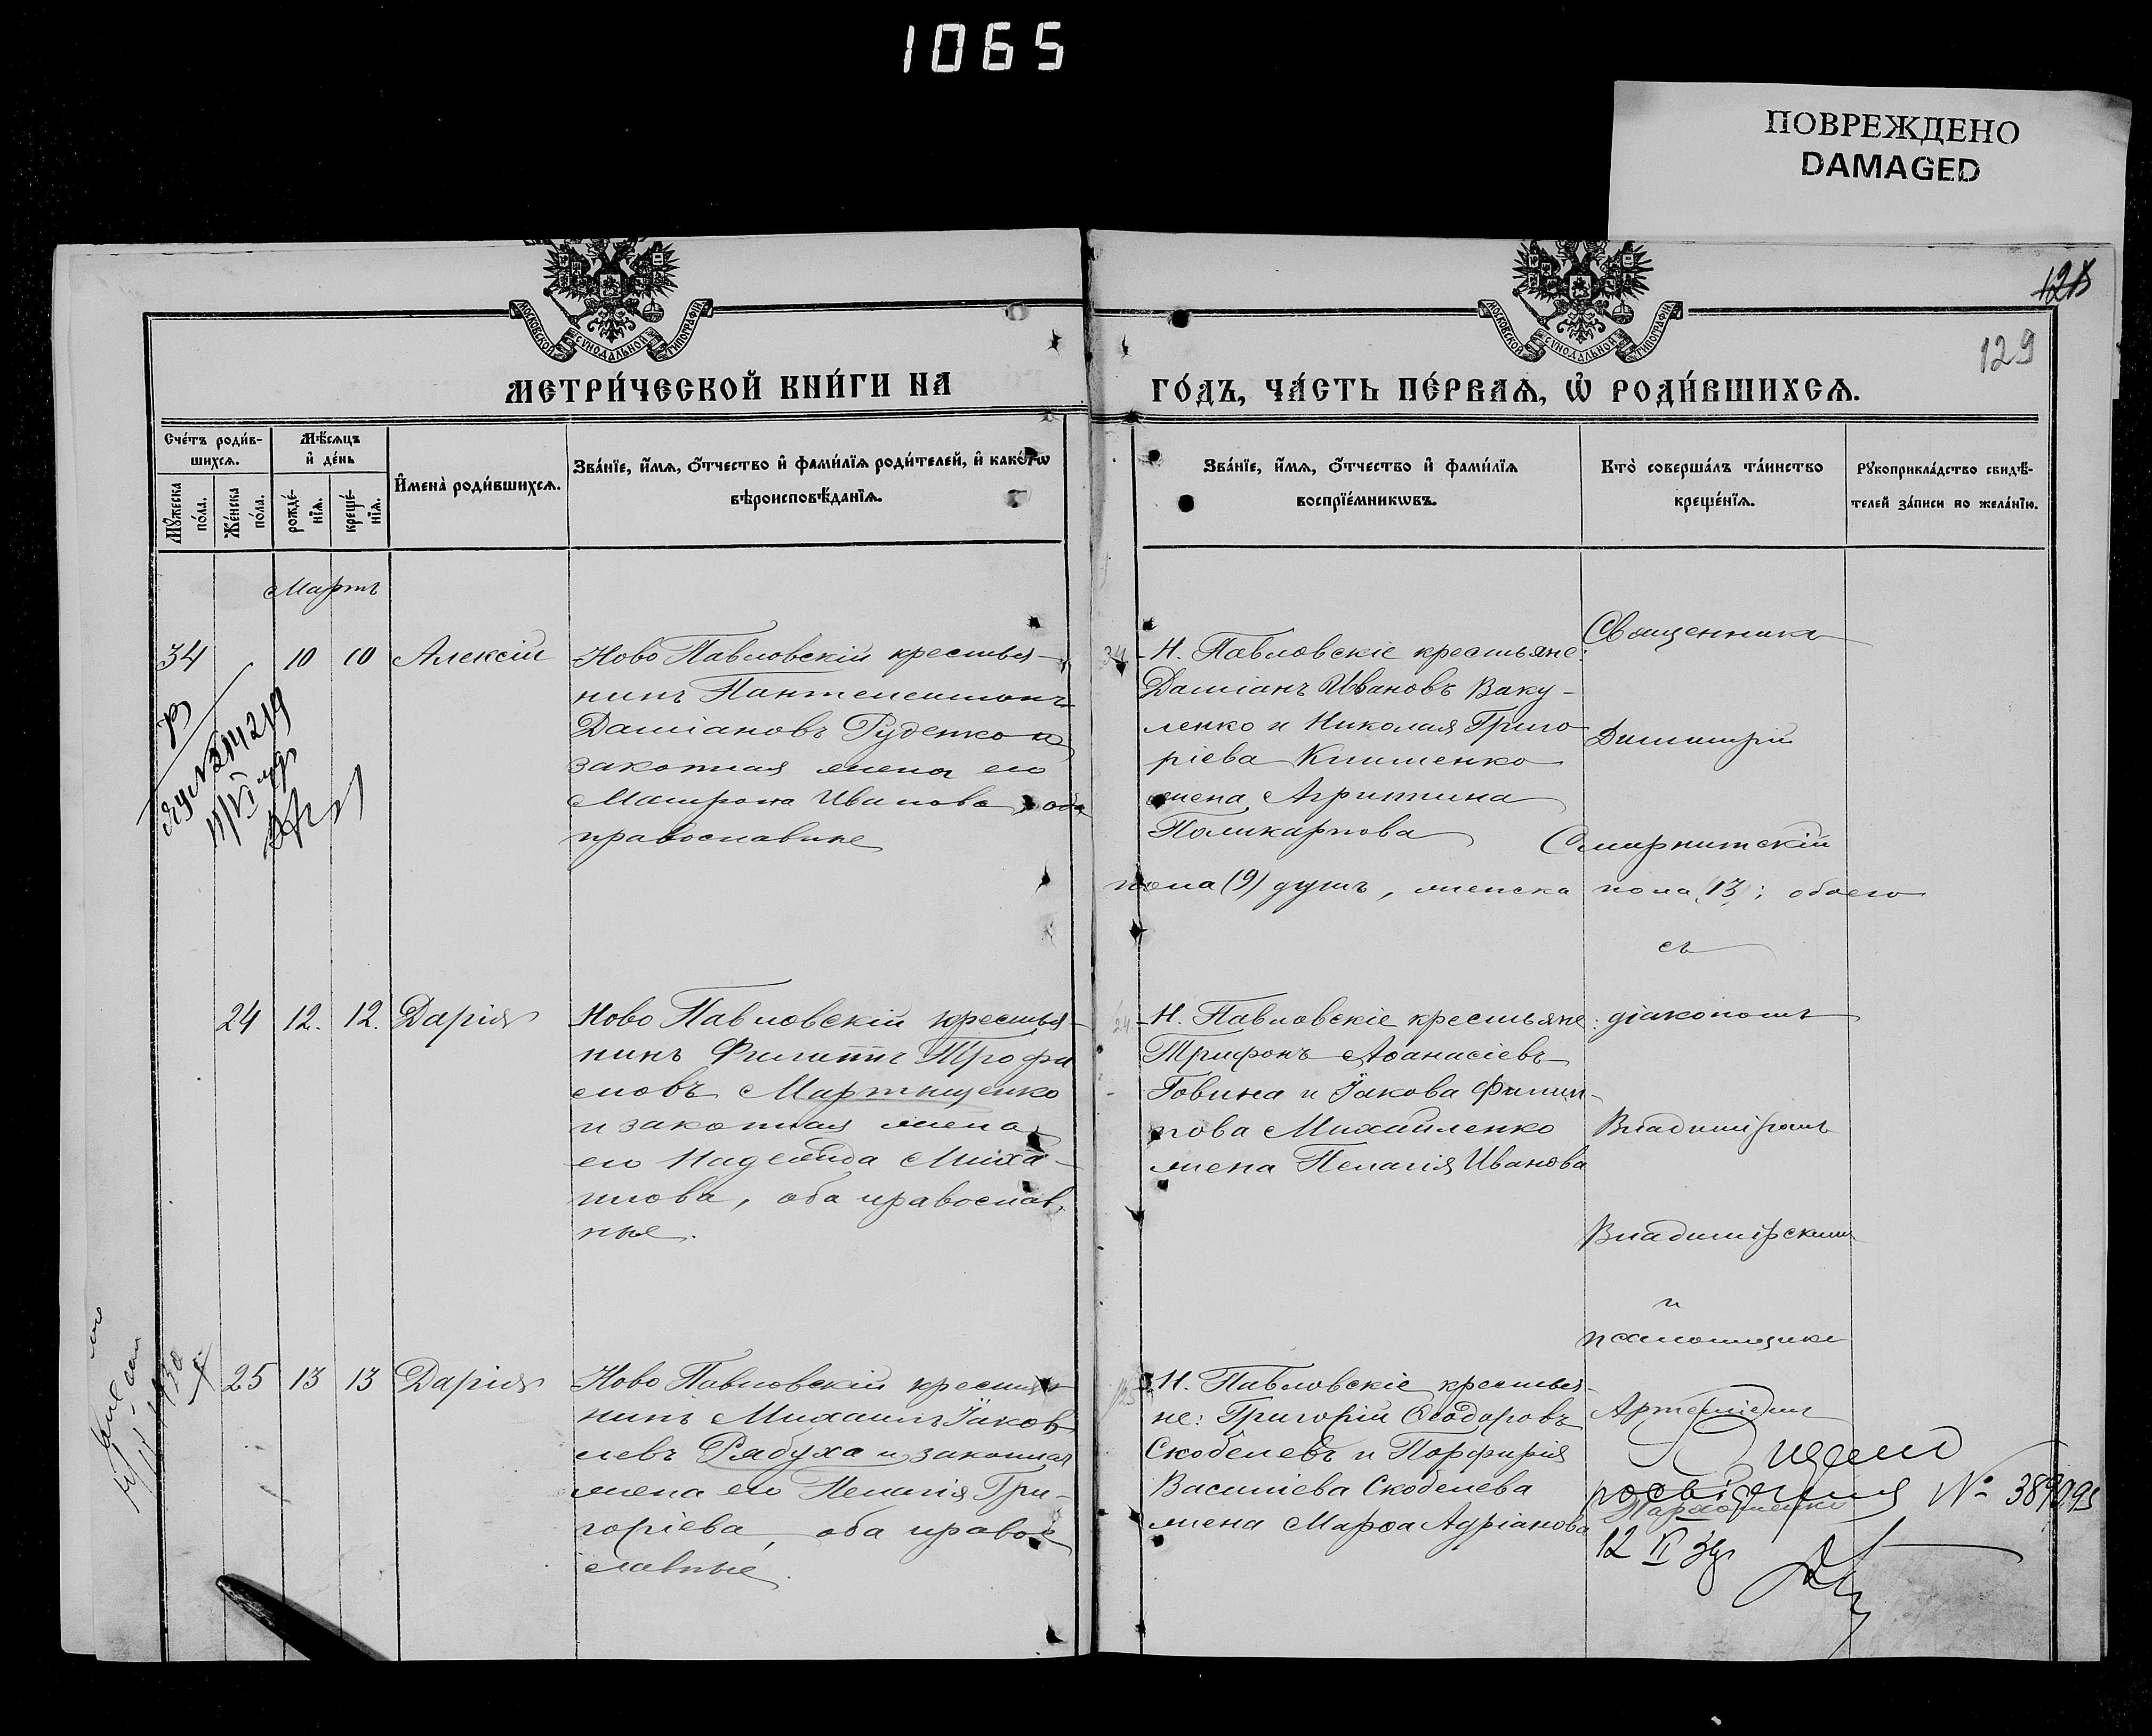 1065
ПОВРЕЖДЕНО
DAMAGED
129
МОСКОВСКОЙ СѴНОДАЛЬНОЙ ТИПОГРАФІИ
МОСКОВСКОЙ СѴНОДАЛЬНОЙ ТИПОГРАФІИ
МЕТРИ́ЧЕСКОЙ КНИ́ГИ НА
ГО́ДЪ, ЧА́СТЬ ПЕ́РВАѦ, Ѡ҆ РОДИ́ВШИХСѦ.
Сче́тъ роди́в-
шихсѧ.
Мꙋ́жеска
по́ла.
Же́нска
по́ла.
Мѣ́сѧцъ
и҆ де́нь
рожде́-
нїѧ.
креще́-
нїѧ.
И҆мена̀ роди́вшихсѧ.
Зва́нїе, и҆́мѧ, ѻ҆́тчество и҆ фами́лїѧ роди́телей, и҆ како́гѡ
вѣроисповѣ́данїѧ.
Зва́нїе, и҆́мѧ, ѻ҆́тчество и҆ фами́лїѧ
воспрїе́мникѡвъ.
Кто̀ соверша́лъ та́инство
креще́нїѧ.
Рꙋкоприкла́дство свидѣ́-
телей за́писи по жела́нїю.
Мартъ
34 10 10 Алексій
Ново Павловскій крестья-
нинъ Пантелеимонъ
Даміановъ Руденко и
законная жена его
Матрона Иванова, оба
православные
34 Н. Павловскіе крестьяне:
Даміанъ Ивановъ Ваку-
ленко и Николая Григо
ріева Клименко
жена Агриппина
Поликарпова
Священникъ
Димитрій
Смирнитскій
пола (9) душъ, женска пола (13); обоего
съ
24 12. 12. Дарія
Ново Павловскій крестья-
нинъ Филиппъ Трофи
мовъ Мартыщенко
и законная жена
его Надежда Миха-
илова, оба православ
ные.
24. Н. Павловскіе крестьяне:
Трифонъ Аѳанасіевъ
Говина и Іакова Филип-
пова Михайленко
жена Пелагія Иванова
діакономъ
Владиміромъ
Владимірскимъ
и
псаломщикъ
25 13 13 Дарія
Ново Павловскій крестья
нинъ Михаилъ Іаков
левъ Рябуха и законная
жена его Пелагія Гри-
горіева, оба право
славные.
25 Н. Павловскіе крестья-
не: Григорій Ѳеодоровъ
Скобелевъ и Порфирія
Василіева Скобелева
жена Марѳа Адріанова
Артемій
Пархоменко
№
12 VI